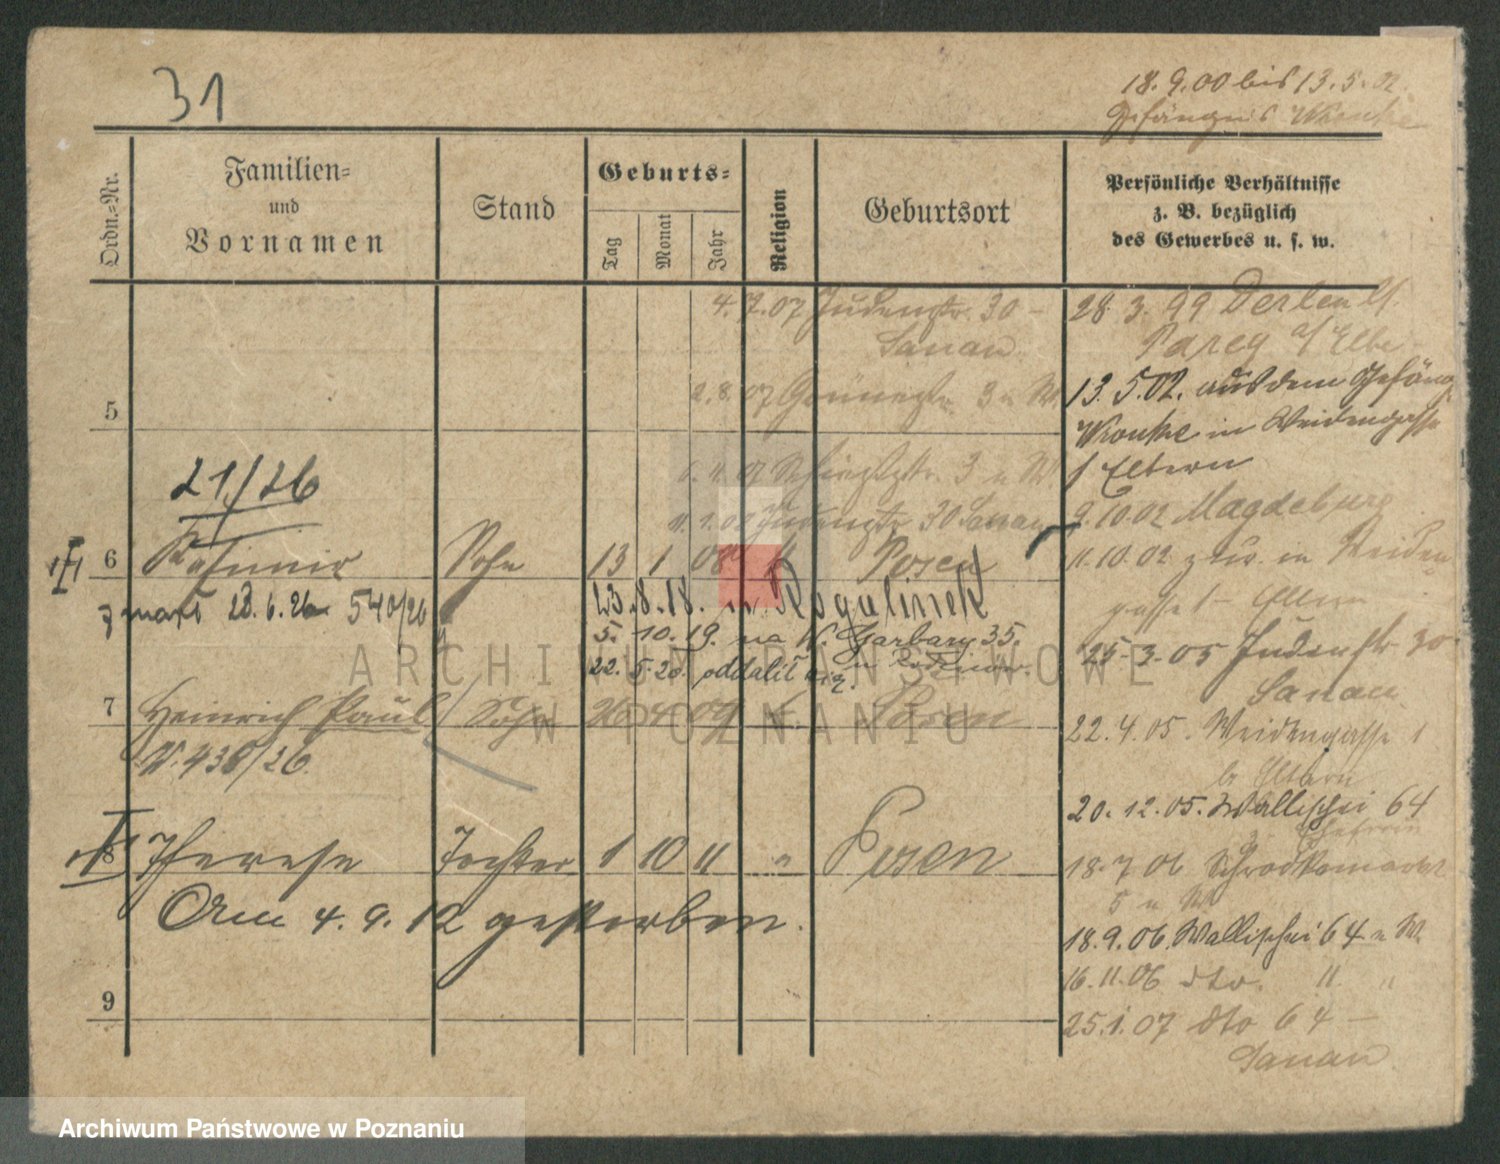 31
18. 9. 00 bis 13. 5. 02.
Gefängnis Wronke
Ordn.=Nr.
Familien=
und
Vornamen
Stand
Geburts=
Tag
Monat
Jahr
Religion
Geburtsort
Persönliche Verhältnisse
z. B. bezüglich
des Gewerbes u. s. w.
4. 7. 07 Judenstr. 30 –
Sanau
28. 3. 99 Derben
Parey a/ Elbe
5
2. 8. 07 3 u W
13. 5. 02. aus dem Gefäng
Wronke in Weidengasse
Eltern
21/26
3 u W
30 Sanau
9. 10. 02 Magdeburg
6 Kasimir Sohn 13 1 08 k Posen
11. 10. 02 zur. in Weiden
gasse Eltern
28. 6. 26 540/26
23. 8. 18. in Rogalinek
5. 10. 19. na W. Garbary 35.
22. 5 20. oddalił się.
25. 3. 05 Judenstr. 30
Sanau
7 Heinrich Paul Sohn 26 4 09 k. Posen
N. 438/26.
22. 4. 05. Weidengasse 1
b. Eltern
20. 12. 05. Wallischei 64
z. Ehefrau
8 Therese Tochter 1 10 11 " Posen
18. 7. 06 Schrodkamarkt
5 u W
Am 4. 9. 12 gestorben.
18. 9. 06. Wallischei 64 u W.
16. 11. 06 dto. 11. "
9
25. 1. 07 dto 64 –
Sanau
ARCHIWUM PAŃSTWOWE
W POZNANIU
Archiwum Państwowe w Poznaniu